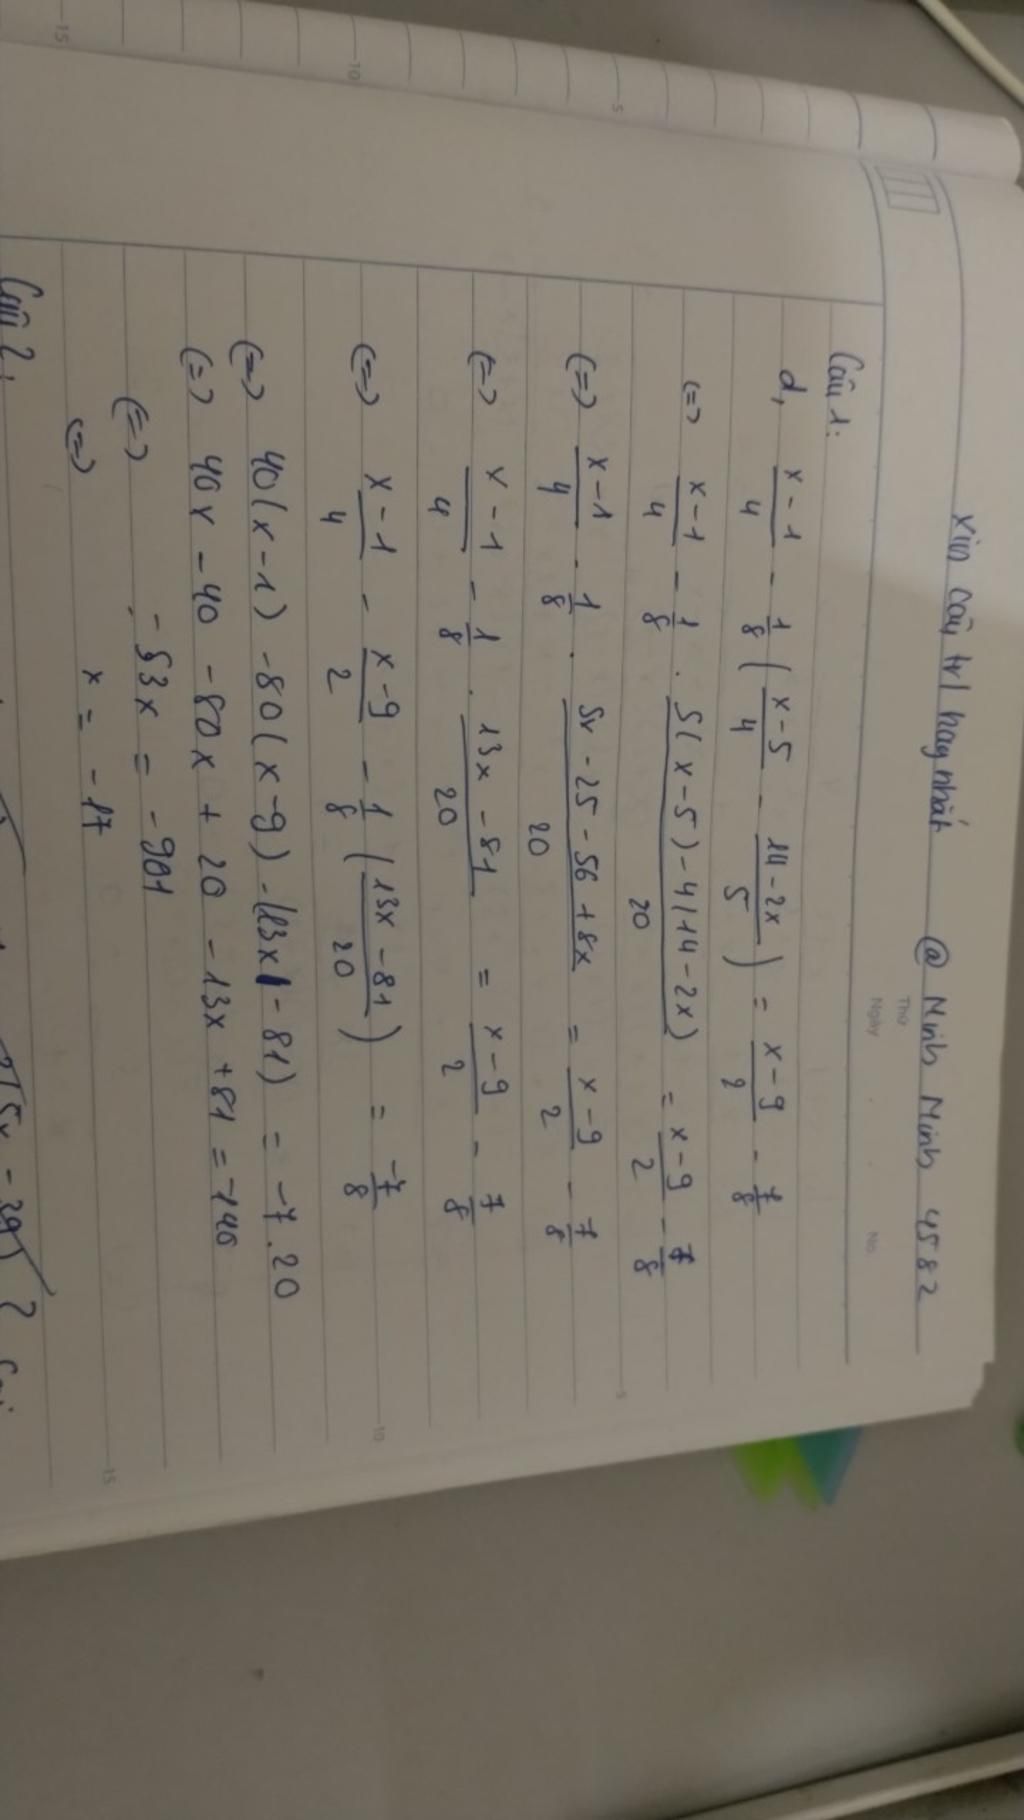 Xin câu trl hay nhất @ Minh Minh 4582
Thứ
Ngày . . No.
Câu 1:
d, x-1/4 - 1/8 ( x-5/4 - 14-2x/5 ) = x-9/2 - 7/8
(=) x-1/4 - 1/8 . 5(x-5)-4(14-2x)/20 = x-9/2 - 7/8
(=) x-1/4 - 1/8 . 5x-25-56+8x/20 = x-9/2 - 7/8
(=) x-1/4 - 1/8 . 13x-81/20 = x-9/2 - 7/8
(=) x-1/4 - x-9/2 - 1/8 ( 13x-81/20 ) = -7/8
(=) 40(x-1) -80(x-9) -(13x - 81) = -7.20
(=) 40x - 40 - 80x + 20 - 13x + 81 = -140
(=) -53x = -901
(=) x = -17
Câu 2,
5 10 15
5 10 15